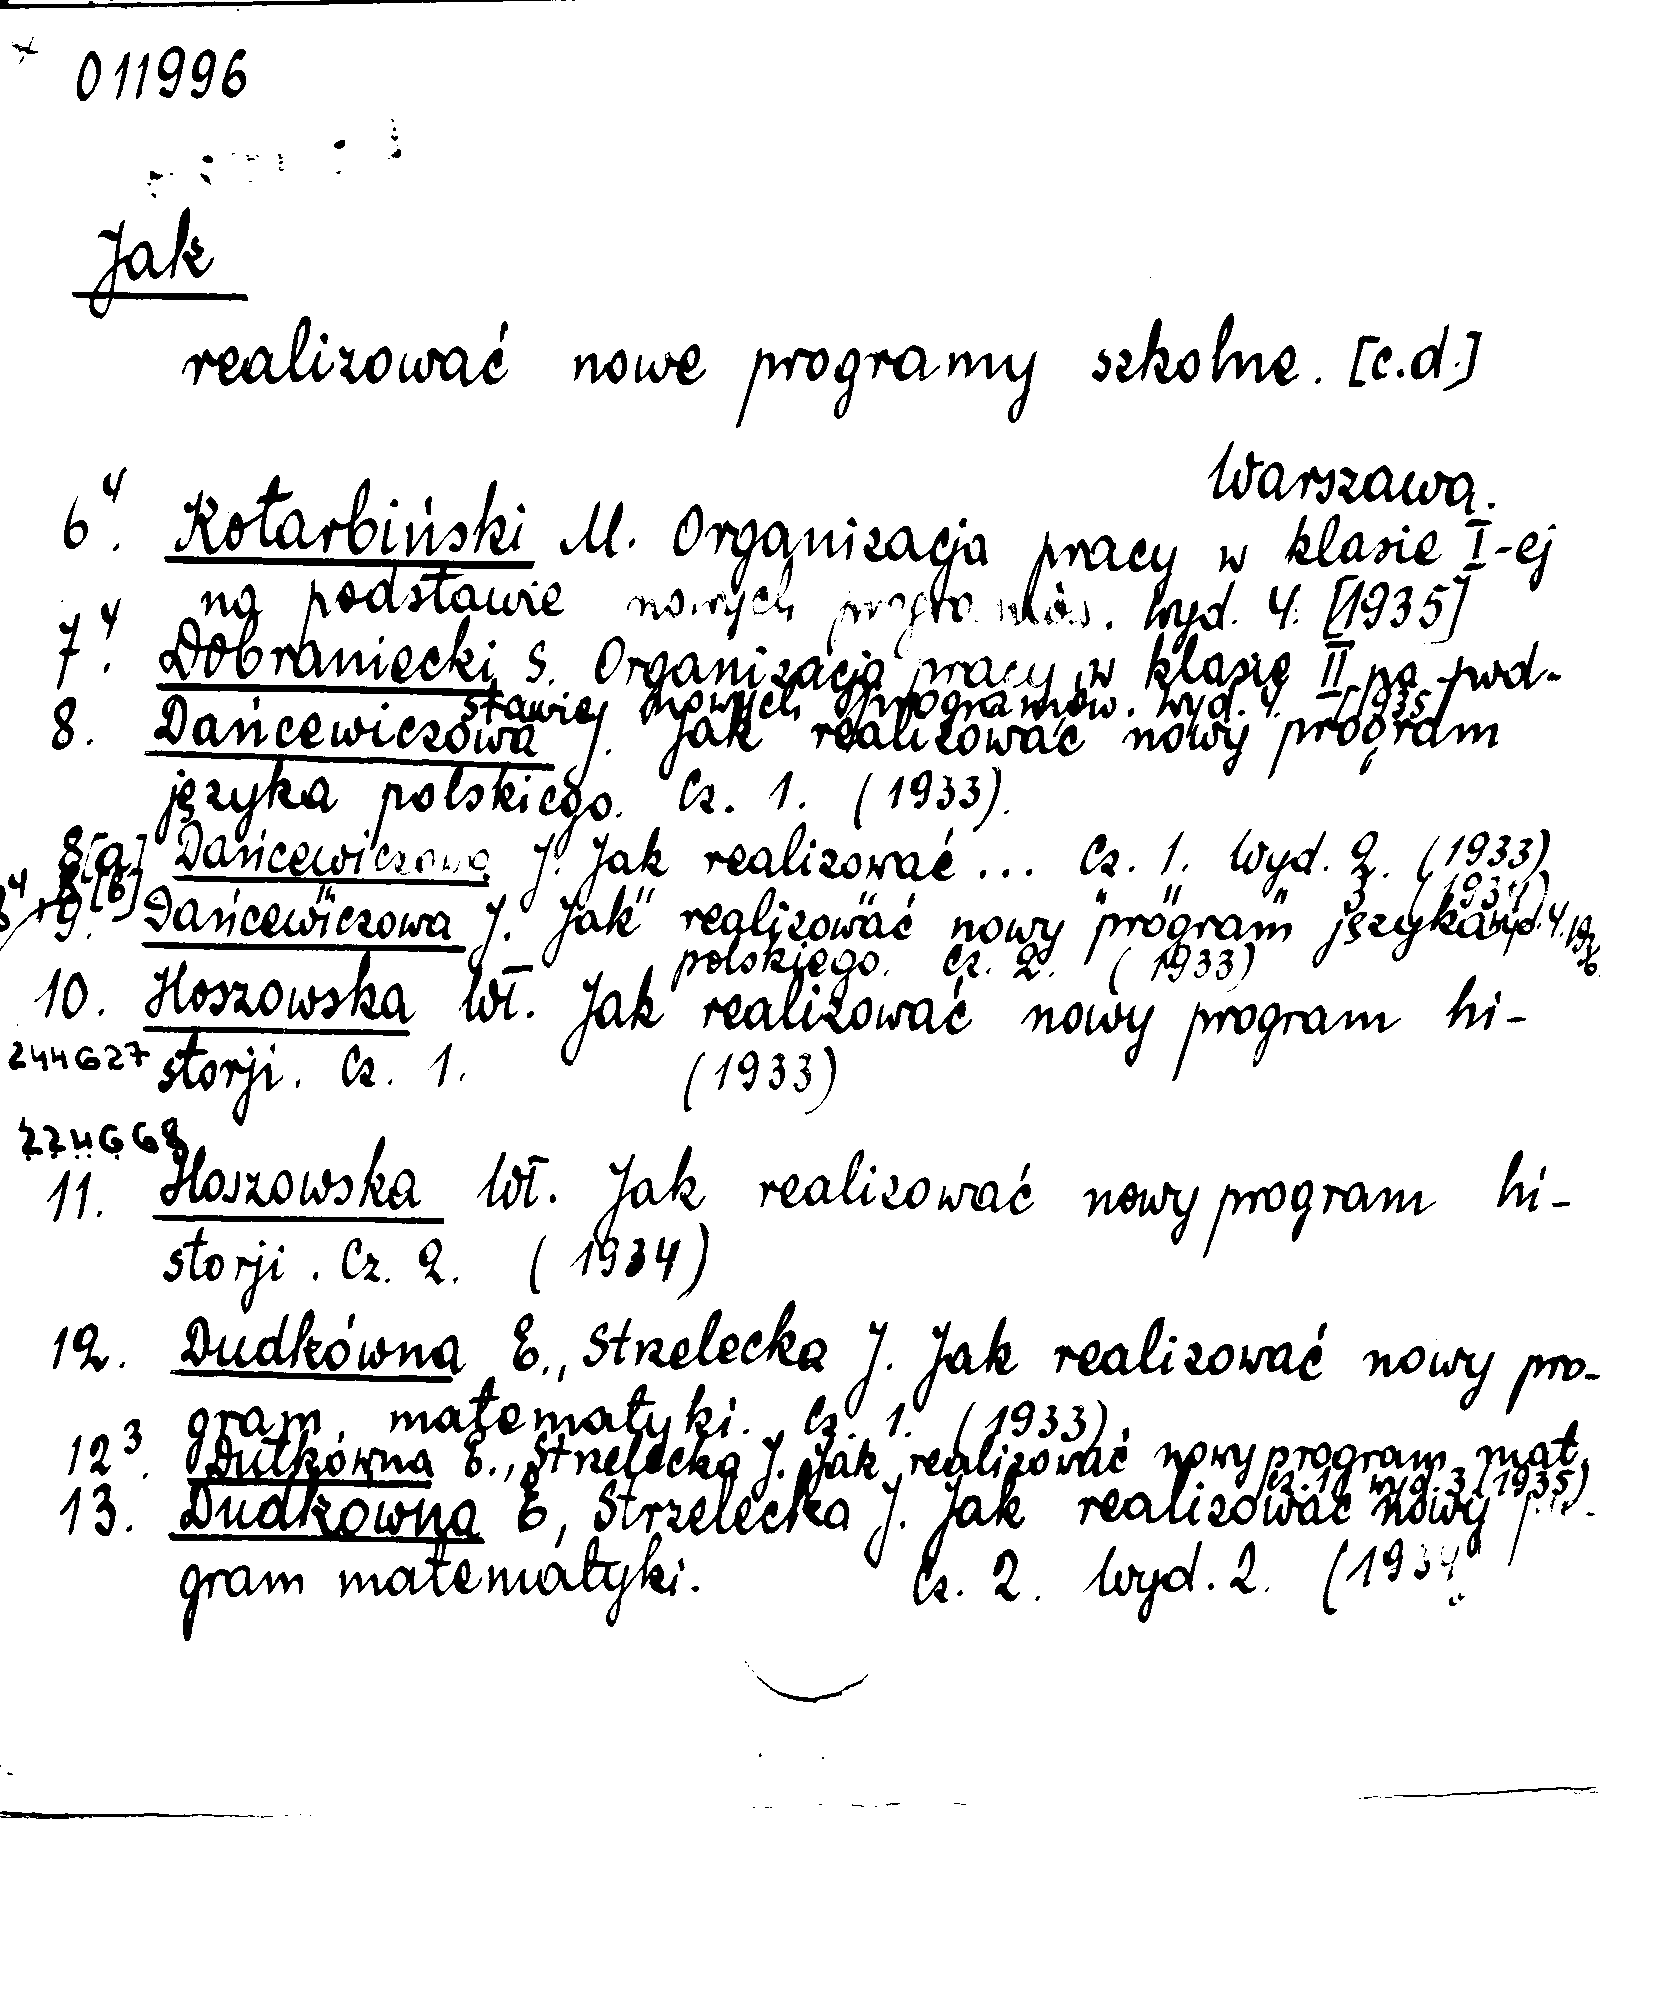 011996
Jak
realizować nowe programy szkolne. [c.d.]
Warszawa.
6⁴. Kotarbiński M. Organizacja pracy w klasie I-ej
na podstawie nowych programów. Wyd. 4. [1935]
7⁴. Dobraniecki S. Organizacja pracy w klasie II na pod-
stawie nowych programów. Wyd. 4. [1935]
8. Dańcewiczowa J. Jak realizować nowy program
języka polskiego. Cz. 1. (1933).
8[a] Dańcewiczowa J. Jak realizować... Cz. 1. Wyd. 2. (1933)
8[b] " " " " " 3 (1934)
wyd. 4. 1936
9. Dańcewiczowa J. Jak realizować nowy program języka
polskiego. Cz. 2. (1933)
10. Hoszowska Wł. Jak realizować nowy program hi-
244627 storji. Cz. 1. (1933)
11. Hoszowska Wł. Jak realizować nowy program hi-
storji. Cz. 2. (1934)
12. Dudkówna E., Strzelecka J. Jak realizować nowy pro-
gram matematyki. Cz. 1. (1933)
12³. Dutkówna E., Strzelecka J. Jak realizować nowy program mat.
cz. 1. wyd. 3 (1935)
13. Dudkówna E, Strzelecka J. Jak realizować nowy pro-
gram matematyki. Cz. 2. Wyd. 2. (1934